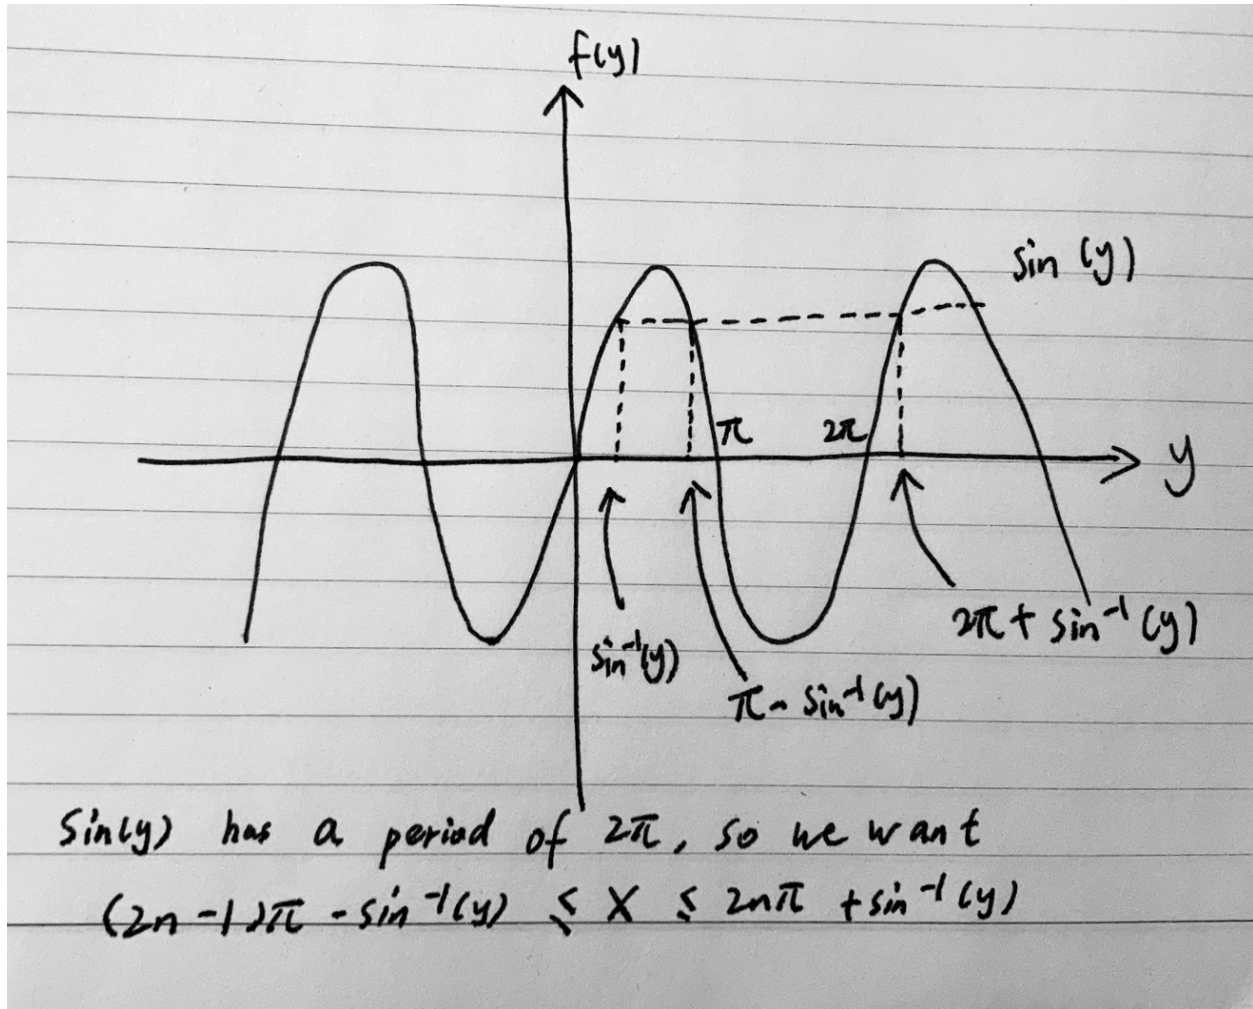 f(y)
sin (y)
π
2π
y
sin⁻¹(y)
π - sin⁻¹(y)
2π + sin⁻¹(y)
Sin(y) has a period of 2π, so we want
(2n-1)π - sin⁻¹(y) ≤ X ≤ 2nπ + sin⁻¹(y)